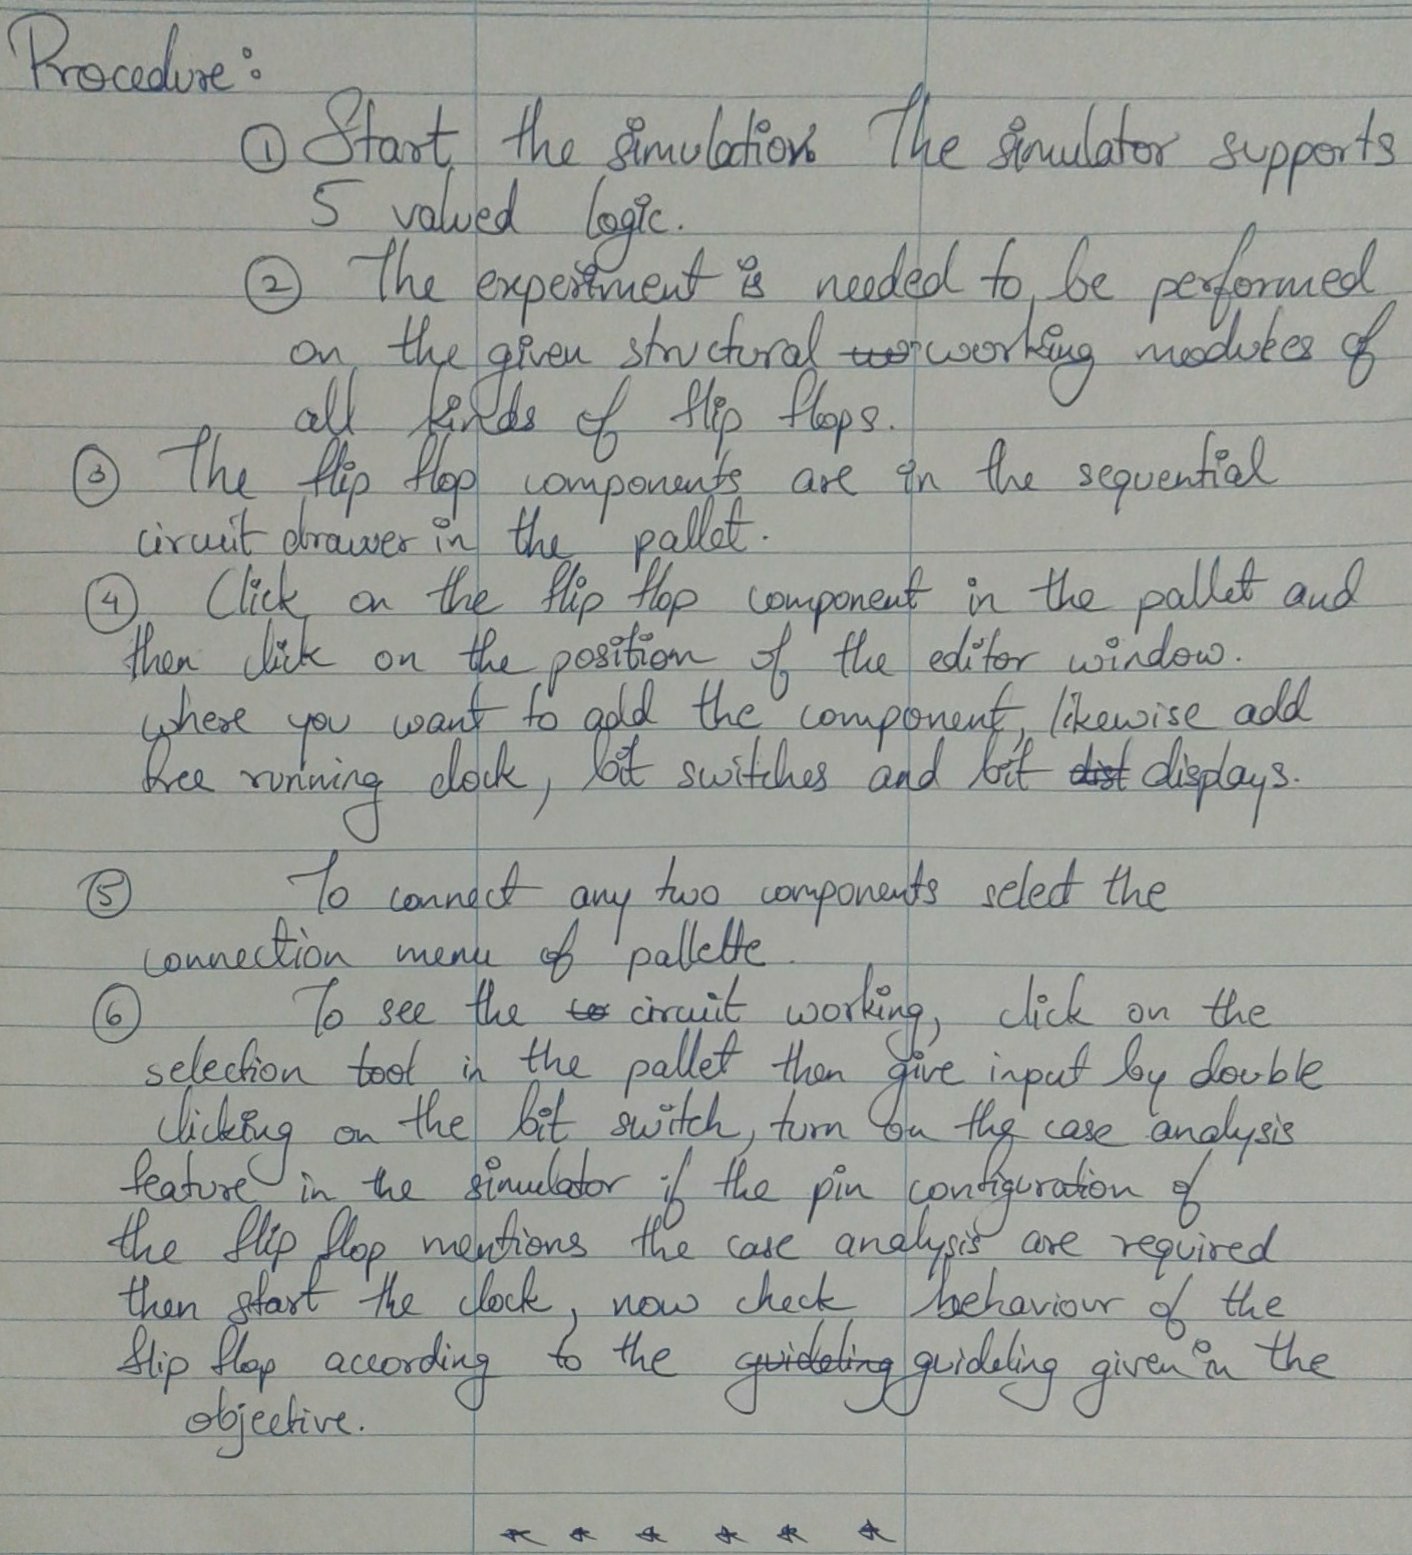 Procedure:
① Start the simulation. The simulator supports
5 valued logic.
② The experiment is needed to be performed
on the given structural ~~wor~~ working modules of
all kinds of flip flops.
③ The flip flop components are in the sequential
circuit drawer in the pallet.
④ Click on the flip flop component in the pallet and
then click on the position of the editor window.
where you want to add the component, likewise add
free running clock, bit switches and bit ~~dist~~ displays.
⑤ To connect any two components select the
connection menu of pallette.
⑥ To see the ~~to~~ circuit working, click on the
selection tool in the pallet then give input by double
clicking on the bit switch, turn on the case analysis
feature in the simulator if the pin configuration of
the flip flop mentions the case analysis are required
then start the clock, now check behaviour of the
flip flop according to the ~~guideling~~ guideling given in the
objective.
★ ★ ★ ★ ★ ★